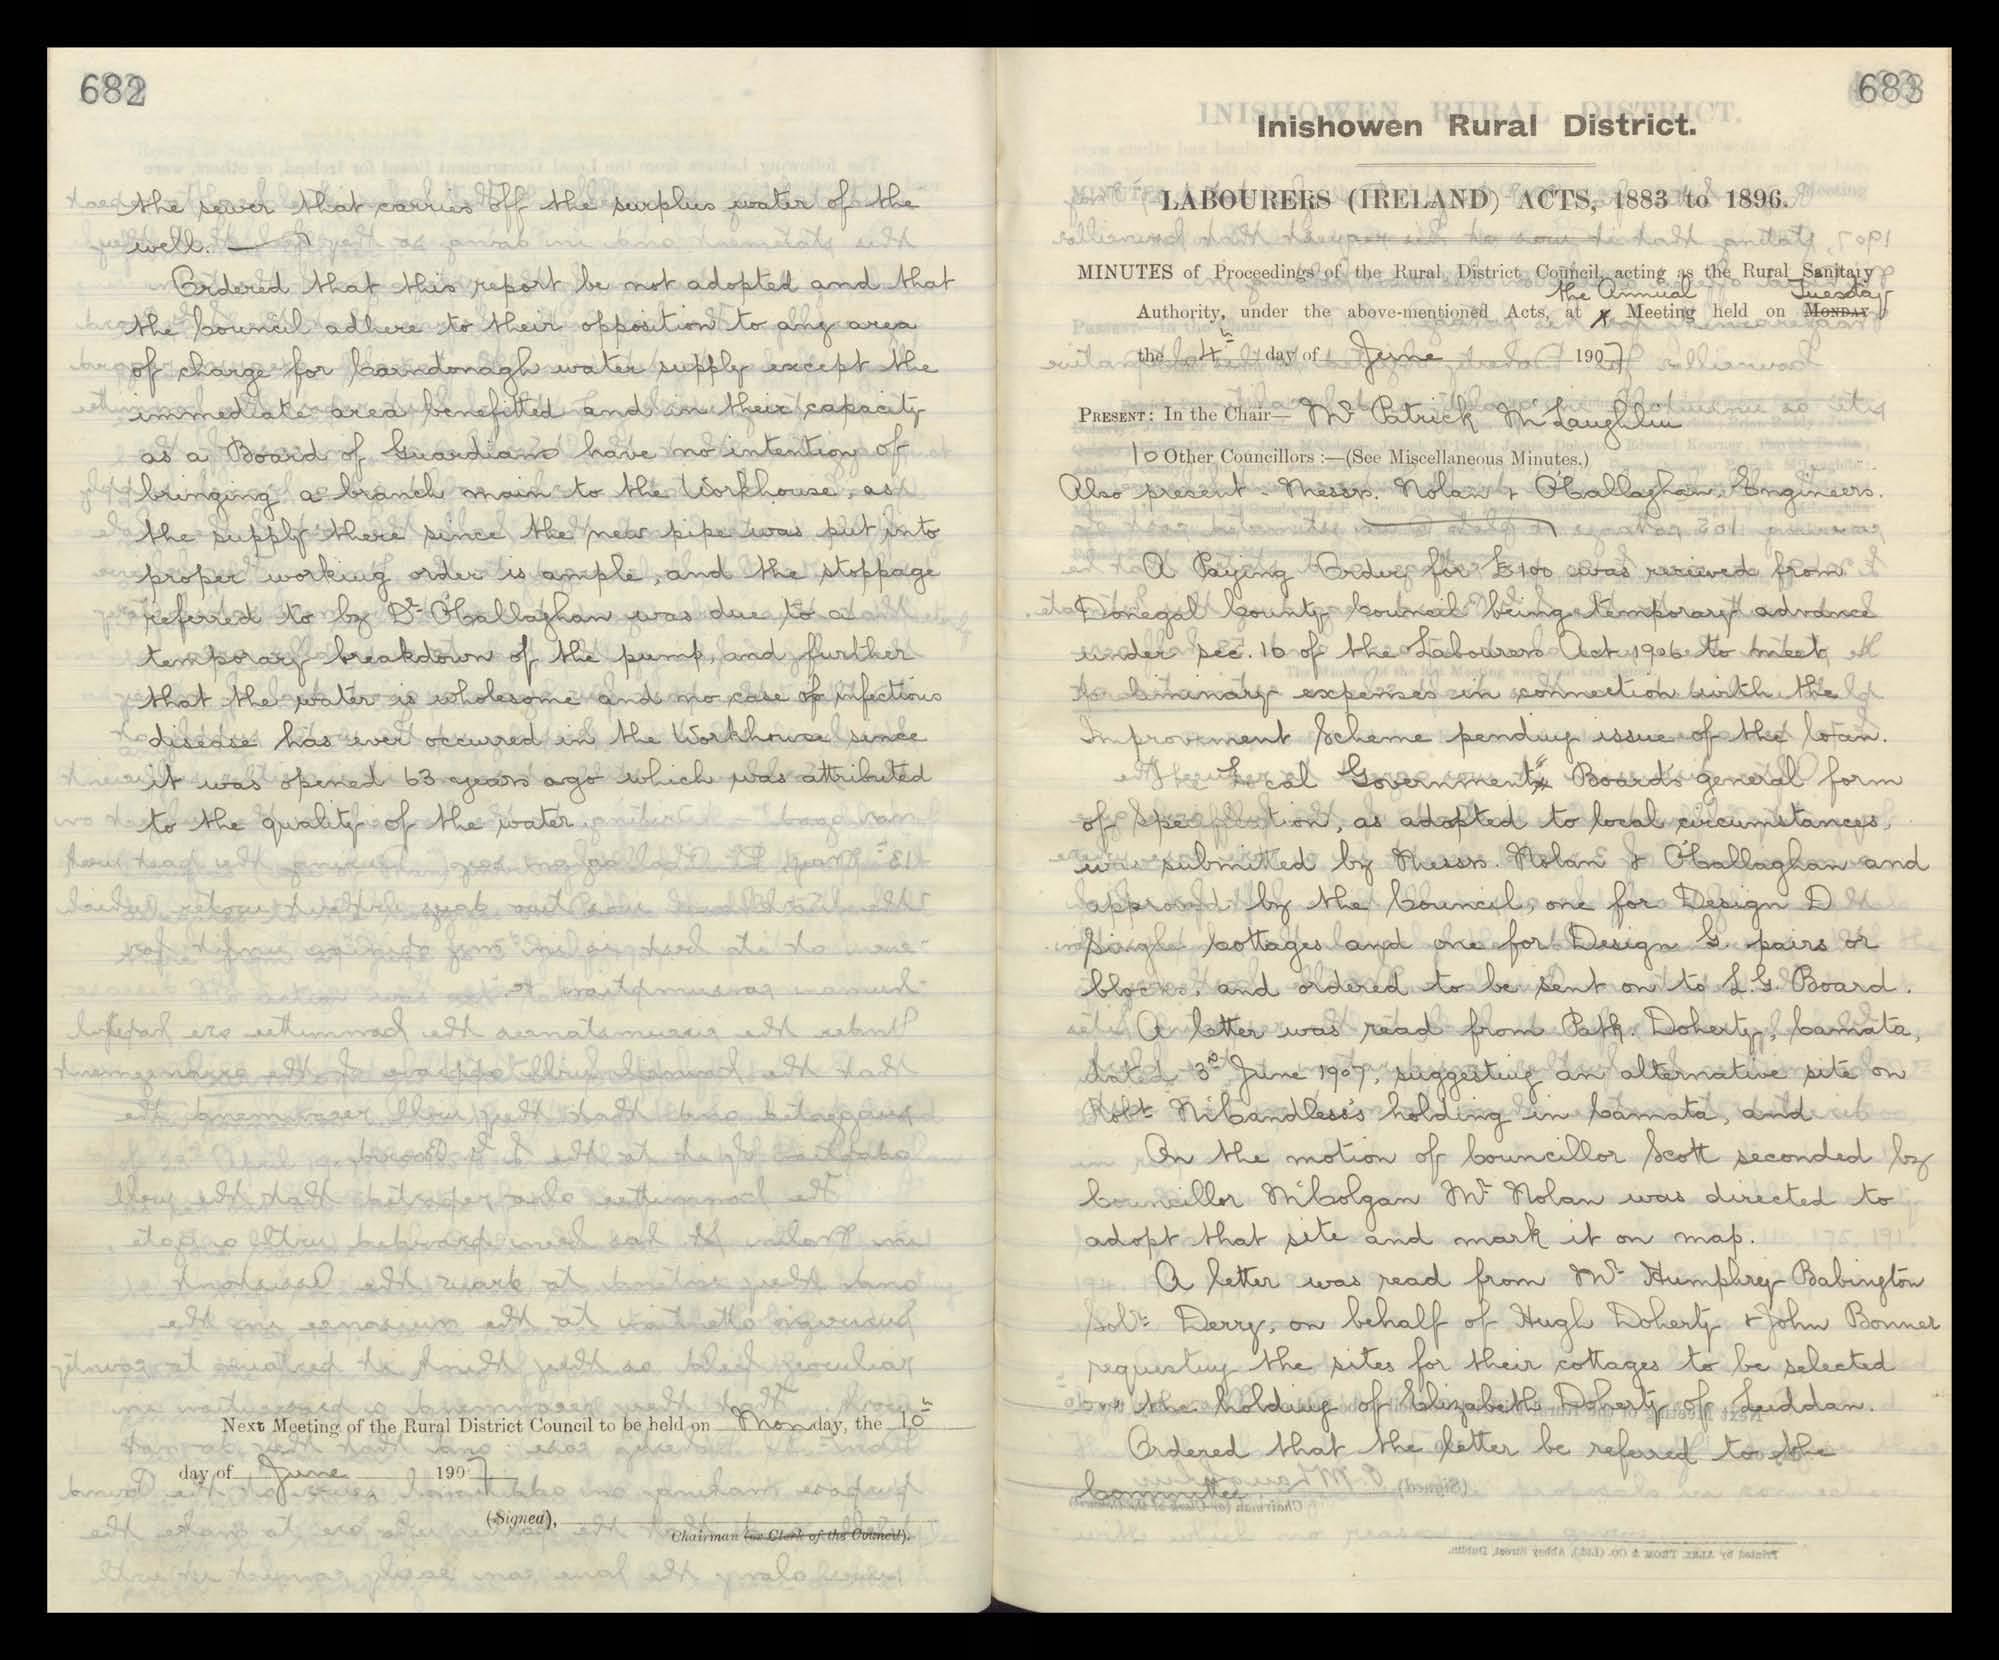 682
the sewer that carries off the surplus water of the
well.
Ordered that this report be not adopted and that
the Council adhere to their opposition to any area
of charge for Carndonagh water supply except the
immediate area benefitted and in their capacity
as a Board of Guardians have no intention of
bringing a branch main to the Workhouse, as
the supply there since the new pipe was put into
proper working order is ample, and the stoppage
referred to by Dr O'Callaghan was due to a
temporary breakdown of the pump, and further
that the water is wholesome and no case of infectious
disease has ever occurred in the Workhouse since
it was opened 63 years ago which was attributed
to the quality of the water.
Next Meeting of the Rural District Council to be held on Monday, the 10th
day of June 1907
(Signed),
Chairman (or Clerk of the Council).
683
Inishowen Rural District.
LABOURERS (IRELAND) ACTS, 1883 to 1896.
MINUTES of Proceedings of the Rural District Council, acting as the Rural Sanitary
the Annual Tuesday
Authority, under the above-mentioned Acts, at a Meeting held on MONDAY
the 4th day of June 1907
PRESENT: In the Chair— Mr Patrick McLaughlin
10 Other Councillors:—(See Miscellaneous Minutes.)
Also present - Messrs. Nolan & O'Callaghan, Engineers.
A Paying Order for £100 was received from
Donegal County Council being temporary advance
under sec. 16 of the Labourers Act 1906 to meet
preliminary expenses in connection with the
Improvement Scheme pending issue of the loan.
The Local Government Board's general form
of Specification, as adopted to local circumstances,
were submitted by Messrs. Nolan & O'Callaghan and
approved by the Council, one for Design D
Single Cottages and one for Design G. pairs or
blocks, and ordered to be sent on to L.G. Board.
A letter was read from Patk. Doherty, Camata,
dated 3rd June 1907, suggesting an alternative site on
Robt McCandless's holding in Camata, and
On the motion of Councillor Scott seconded by
Councillor McColgan Mr Nolan was directed to
adopt that site and mark it on map.
A letter was read from Mr Humphrey Babington
Solr. Derry, on behalf of Hugh Doherty & John Bonner
requesting the sites for their cottages to be selected
on the holding of Elizabeth Doherty of Luddan.
Ordered that the letter be referred to the
Committee.